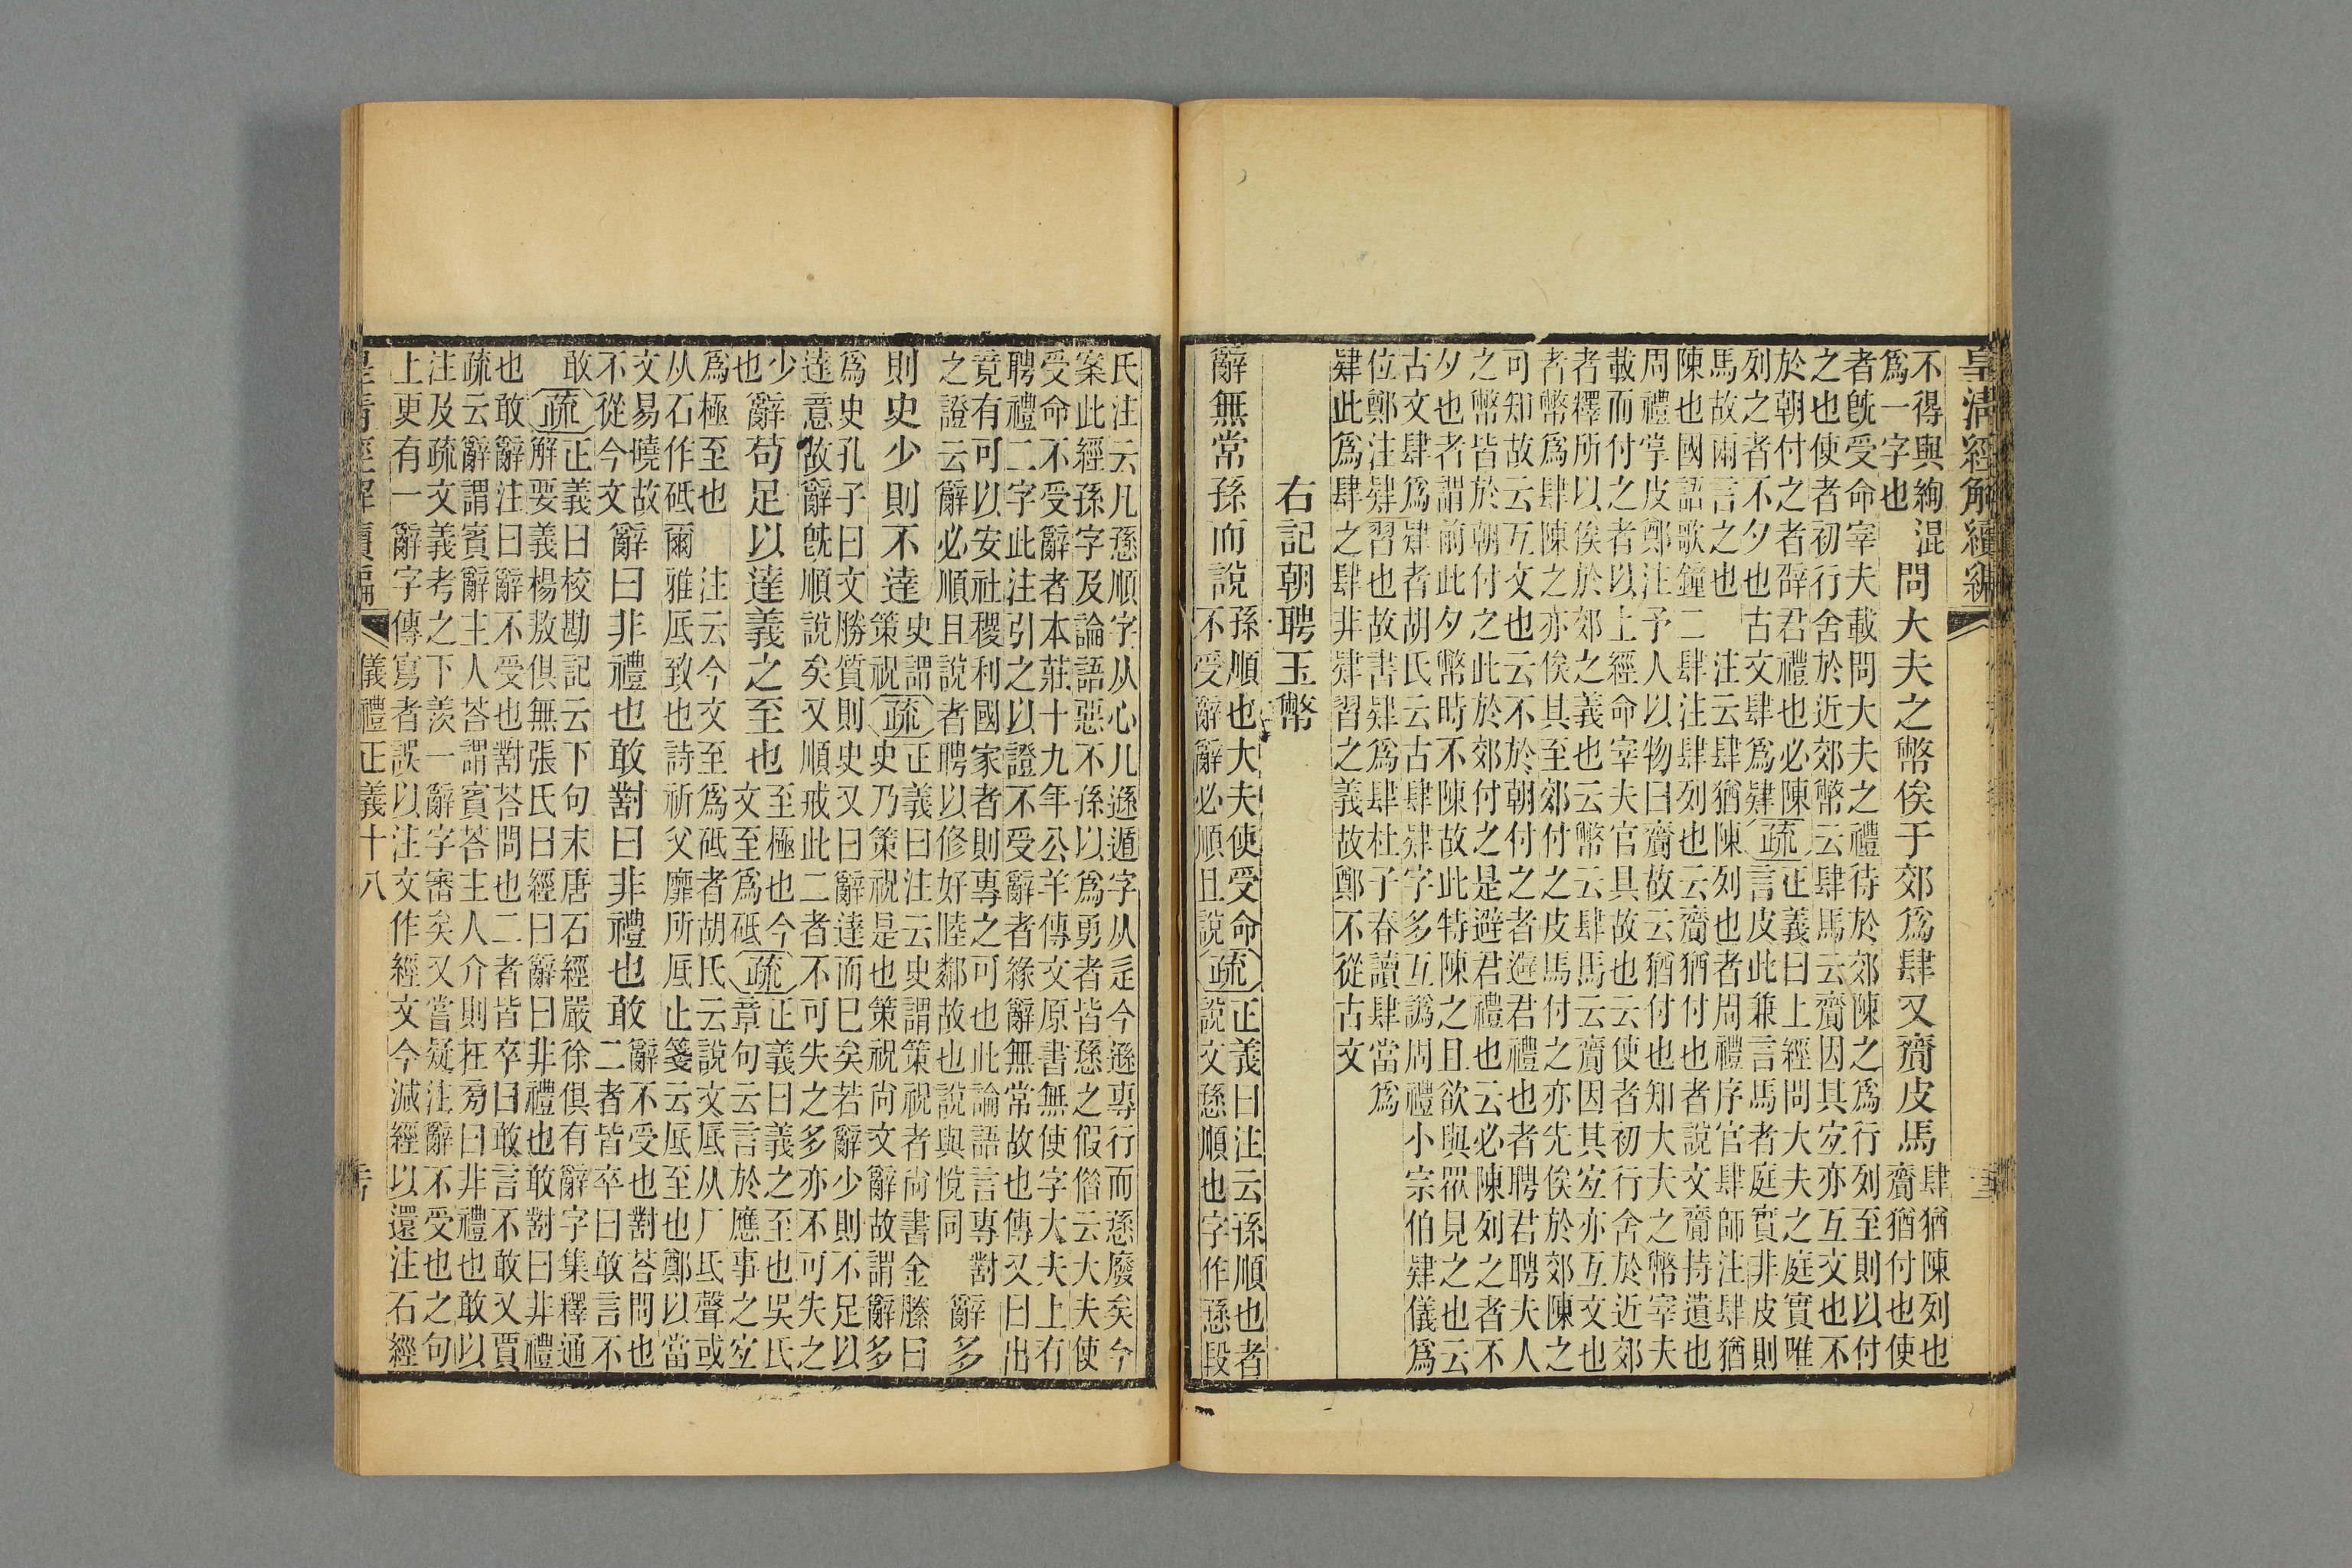 皇清經解續編
不得與絢混
為一字也
問大夫之幣俟于郊為肆又齎皮馬
肆猶陳列也
齎猶付也使
者既受命宰夫載問大夫之禮待於郊陳之為行列至則以付
之也使者初行舍於近郊幣云肆馬云齎因其宜亦互文也不
於朝付之者辟君禮也必陳
列之者不夕也古文肆為肄
疏
正義曰上經問大夫之庭實唯
言皮此兼言馬者庭實非皮則
馬故兩言之也 注云肆猶陳列也者周禮序官肆師注肆猶
陳也國語歌鐘二肆注肆列也云齎猶付也者說文齎持遺也
周禮掌皮鄭注予人以物曰齎故云猶付也知大夫之幣宰夫
載而付之者以上經命宰夫官具故也云使者初行舍於近郊
者釋所以俟於郊之義也云幣云肆馬云齎因其宜亦互文也
者幣為肆陳之亦俟其至郊付之皮馬付之亦先俟於郊陳之
可知故云互文也云不於朝付之者避君禮也者聘君聘夫人
之幣皆於朝付之此於郊付之是避君禮也云必陳列之者不
夕也者謂前此夕幣時不陳故此特陳之且欲與眾見之也云
古文肆為肄者胡氏云古肆肄字多互譌周禮小宗伯肄儀為
位鄭注肄習也故書肄為肆杜子春讀肆當為
肄此為肆之肆非肄習之義故鄭不從古文
右記朝聘玉幣
辭無常孫而說
孫順也大夫使受命
不受辭辭必順且說
疏
正義曰注云孫順也者
說文愻順也字作愻段
氏注云凡愻順字从心凡遜遁字从辵今遜專行而愻廢矣今
案此經孫字及論語惡不孫以為勇者皆愻之假借云大夫使
受命不受辭者本莊十九年公羊傳文原書無使字大夫上有
聘禮二字此注引之以證不受辭者緣辭無常故也傳又曰出
竟有可以安社稷利國家者則專之可也此論語言專對
之證云辭必順且說者聘以修好睦鄰故也說與悅同
辭多
則史少則不達
史謂
策祝
疏
正義曰注云史謂策祝者尚書金縢曰
史乃策祝是也策祝尚文辭故謂辭多
為史孔子曰文勝質則史又曰辭達而已矣若辭少則不足以
達意故辭既順說矣又順戒此二者不可失之多亦不可失之
少
也
辭苟足以達義之至也
至極也今
文至為砥
疏
正義曰義之至也吳氏
章句云言於應事之宜
為極至也 注云今文至為砥者胡氏云說文厎从厂氐聲或
从石作砥爾雅厎致也詩祈父靡所厎止箋云厎至也鄭以當
文易曉故
不從今文
辭曰非禮也敢對曰非禮也敢
辭不受也對荅問也
二者皆卒曰敢言不
敢
疏
正義曰校勘記云下句末唐石經嚴徐俱有辭字集釋通
解要義楊敖俱無張氏曰經曰辭曰非禮也敢對曰非禮
也敢辭注曰辭不受也對荅問也二者皆卒曰敢言不敢又賈
疏云辭謂賓辭主人荅謂賓荅主人介則在旁曰非禮也敢以
注及疏文義考之下羨一辭字審矣又嘗疑注辭不受也之句
上更有一辭字傳寫者誤以注文作經文今減經以還注石經
皇清經解續編
儀禮正義十八